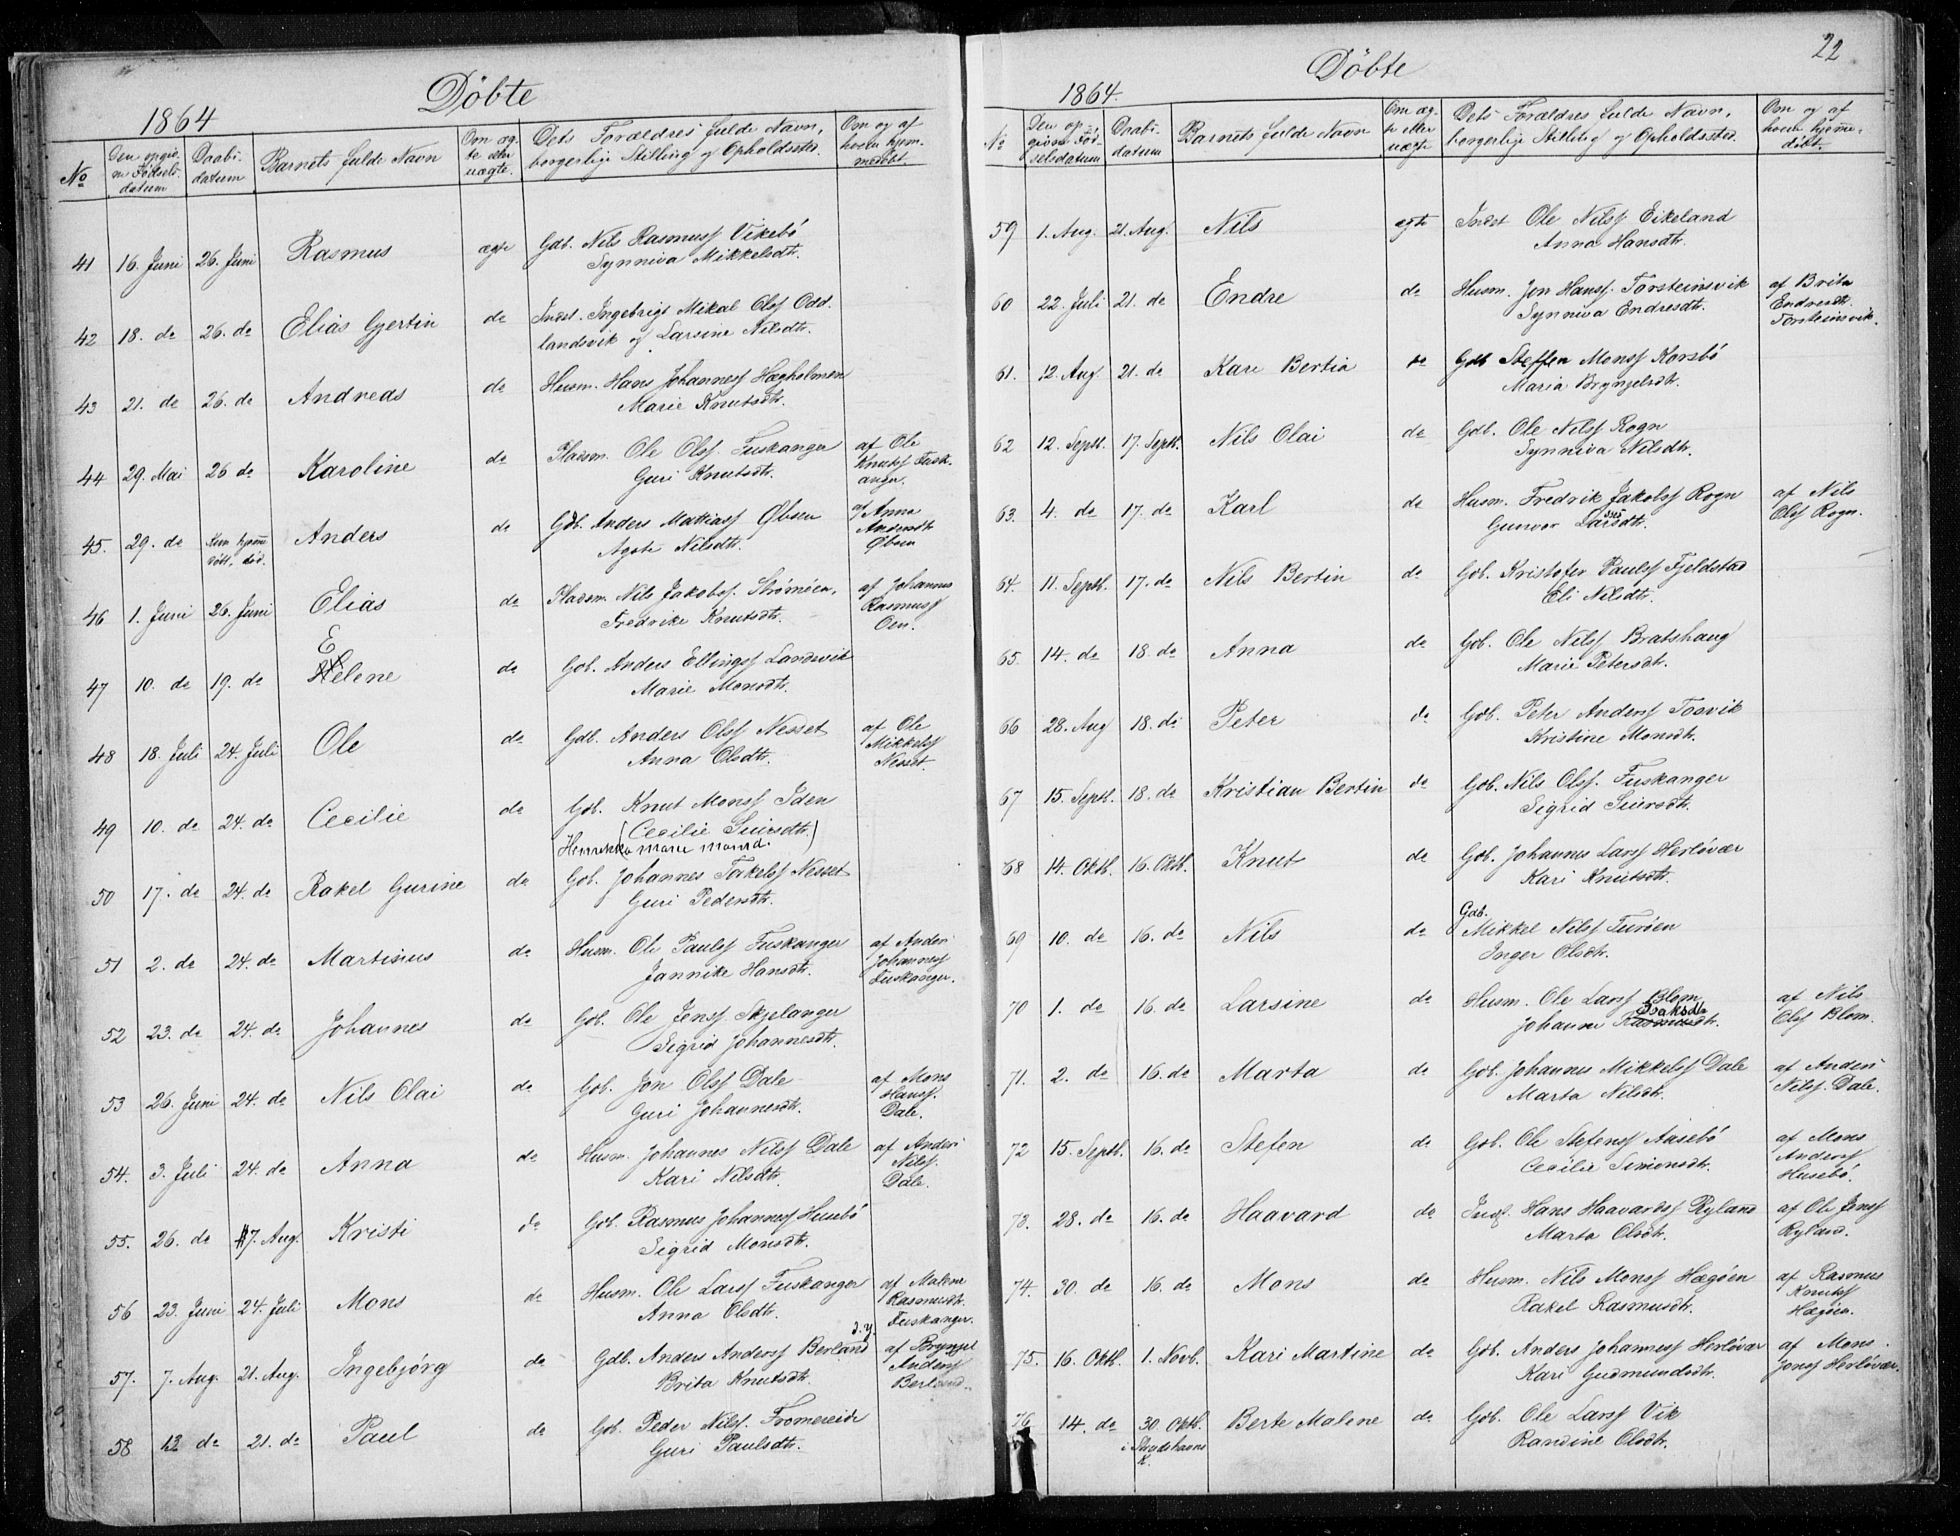 Döbte
1864
No
Den opgiv-
ne Fødsels-
datum
Daabs-
datum
Barnets fulde Navn
Om æg-
te eller
uægte.
Dets Forældres fulde Navn,
borgerlige Stilling og Opholdssted
Om og af
hvem hjem-
medøbt
41 16. Juni 26. Juni Rasmus ægte Gdb. Nils Rasmuss Vikebö
Synniva Mikkelsdtr.
42 18. do 26. do Elias Gjertin do Indst. Ingebrigt Mikal Olss Odd-
landsvik og Larsine Nilsdtr.
43 21. do 26. do Andreas do Husm. Hans Johanness Hægholmen
Marie Knutsdtr.
44 29. Mai 26 do Karoline do Pladsm. Ole Olss. Fuskanger
Guri Knutsdtr.
af Ole
Knutss Fusk-
anger.
45. 29. do Kun hjem-
döbt, död. Anders do Gdb. Anders Mattiass Øbsen
Agote Nilsdtr.
af Anna
Andersdtr
Øbsen
46 1. Juni 26. Juni Elias do Pladsm. Nils Jakobss. Strömöen,
Fredrike Knutsdtr.
af Johannes
Rasmuss
Oen.
47 10. do 19. do E
Helene do Gdb. Anders Ellingss Landsvik
Marie Monsdtr.
48 18. Juli 24. Juli Ole do Gdb. Anders Olss Nesset
Anna Olsdtr.
af Ole
Mikkelss
Nesset.
49 10. do 24. do Cecilie do Gdb. Knut Monss Iden
(Cecilie Siversdtr.)
Henrikka Marie Monsd.
50 17. do 24. do Rakel Gurine do Gdb. Johannes Takelss Nesset
Guri Pedersdtr.
51 2. do 24. do Martinus do Husm. Ole Paulss Fuskanger
Jannike Hansdtr.
af Anders
Johanness
Fuskanger.
52 23. do 24. do Johannes do Gdb. Ole Jenss Skjelanger
Sigrid Johannesdtr.
53 26. Juni 24. do Nils Olai do Gdb. Jon Olss Dale
Guri Johannesdtr.
af Mons
Hanss.
Dale.
54. 3. Juli 24. do Anna do Husm. Johannes Nilss Dale
Kari Nilsdtr.
af Anders
Nilss.
Dale.
55. 26. do 7. Aug. Kristi do Gdb. Rasmus Johanness Husebö
Sigrid Monsdtr.
56 23. Juni 24. Juli Mons do Husm. Ole Larss Fuskanger
Anna Olsdtr.
af Malene
Rasmusdtr.
Fuskanger.
57. 7. Aug. 21. Aug. Ingebjörg do Gdb. Anders Anderss Berland d. y.
Brita Knutsdtr.
af Bryngel
Anderss
Berland.
58 12 do 21. do Paul do Gdb. Peder Nilss. Fromereide
Guri Paulsdtr.
22
Döbte
1864.
No
Den op-
givne Fød-
selsdatum
Daabs-
datum
Barnets fulde Navn
Om æg-
te eller
uægte
Dets Forældres fulde Navn,
borgerlige Stilling og Opholdssted.
Om og af
hvem hjemme-
döbt.
59 1. Aug. 21. Aug. Nils ægte Indst Ole Nilss Eikeland
Anna Hansdtr.
60 22. Juli 21. do Endre do Husm. Jon Hanss. Torsteinsvik
Synniva Endresdtr.
af Brita
Endresdtr.
Torsteinsvik.
61. 12. Aug. 21. do Kari Bertia do Gdb Steffen Monss Korsbö
Maria Bryngelsdtr.
62 12. Septb. 17. Septb. Nils Olai do Gdb. Ole Nilss Rogn
Synniva Nilsdtr.
63. 4. do 17. do Karl do Husm. Fredrik Jakobss Rogn
Gunvor Larsdtr.
af Nils
Olss Rogn.
64. 11. Septb. 17. do Nils Bertin do Gdb. Kristofer Paulss Fjeldstad
Eli Nilsdtr.
65. 14. do 18. do Anna do Gdb. Ole Nilss Bratshaug
Marie Petersdtr.
66 28. Aug 18. do Peter do Gdb. Peter Anderss Toavik
Kristine Monsdtr.
67 15. Septb. 18. do Kristian Bertin do Gdb. Nils Olss. Fuskanger
Sigrid Siversdtr.
68 14. Oktb. 16. Oktb. Knut do Gdb. Johannes Larss Herlövær
Kari Knutsdtr.
69 10. do 16. do Nils do Gdb.
Mikkel Nilss Turöen
Inger Olsdtr.
70 1. do 16. do Larsine do Husm. Ole Larss Blom
Isaksdtr
Johanna Rasmusdtr.
af Nils
Olss Blom.
71. 2. do 16. do Marta do Gdb. Johannes Mikkelss Dale
Marta Nilsdtr.
af Anders
Nilss. Dale.
72 15. Septb. 16. do Stefen do Gdb. Ole Stefenss Aasebö
Cecilie Simonsdtr.
af Mons
Anderss
Husebö.
73. 28. do 16. do Haavard do Indst. Hans Haavardss Ryland
Marta Olsdtr.
af Ole Jenss
Ryland.
74. 30. do 16. do Mons do Husm. Nils Monss Hægöen
Rakel Rasmusdtr.
af Rasmus
Knutss
Hægöen.
75. 16. Oktb. 1. Novb. Kari Martine do Gdb. Anders Johanness Herlövær
Kari Gudmundsdtr.
af Mons
Jonss Herlövær.
76 14. do 30. Oktb. Berte Malene do Gdb. Ole Larss Vik
i Skudshavns
K.
Randine Olsdtr.